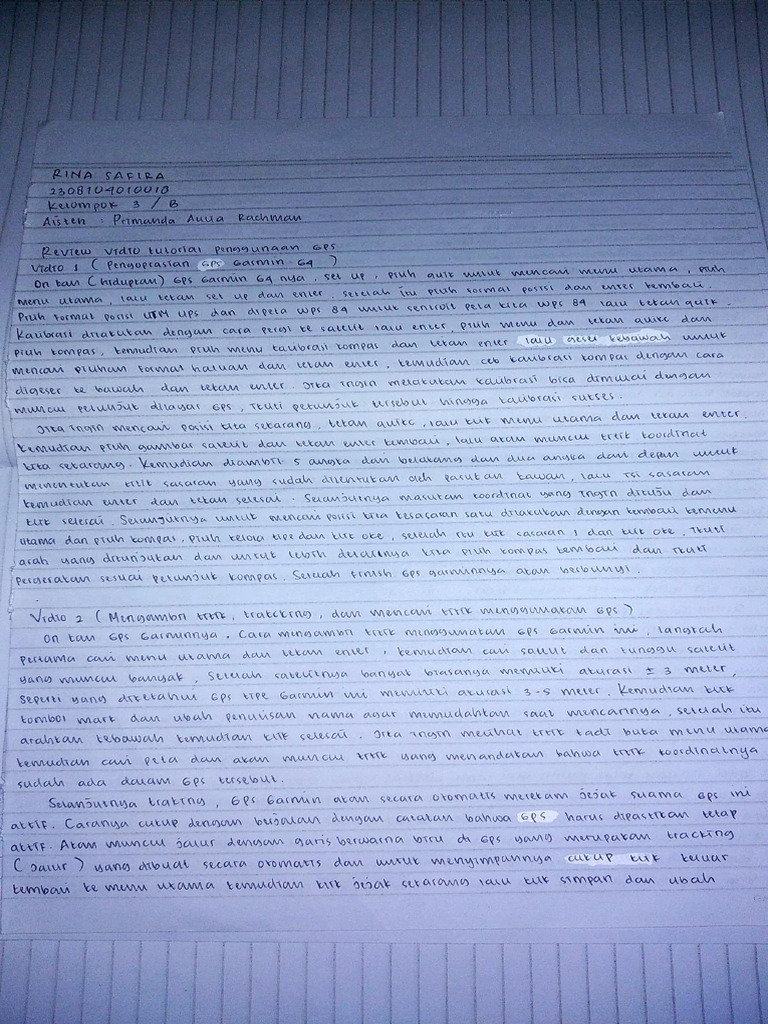 RINA SAFIRA
2308104010018
Kelompok 3 / B
Aisten : Primanda Aulia Rachman
Review vidio tutorial penggunaan GPS
Vidio 1 ( Pengoprasian GPS Garmin 64 )
On kan (hidupkan) GPS Garmin 64 nya, set up, pilih quit untuk mencari menu utama, pilih
menu utama, lalu tekan set up dan enter, setelah itu pilih format posisi dan enter kembali.
Pilih format posisi UTM UPS dan dipeta WPS 84 untuk sentroit peta kita WPS 84 lalu tekan quit.
Kalibrasi dilakukan dengan cara pergi ke satelit lalu enter, pilih menu dan tekan quite dan
pilih kompas, kemudian pilih menu kalibrasi kompas dan tekan enter lalu geser kebawah untuk
mencari pilihan format haluan dan tekan enter, kemudian cek kalibrasi kompas dengan cara
digeser ke bawah dan tekan enter. Jika ingin melakukan kalibrasi bisa dimulai dengan
muncul petunjuk dilayar GPS, ikuti petunjuk tersebut hingga kalibrasi sukses.
Jika ingin mencari posisi kita sekarang, tekan quite, lalu klik menu utama dan tekan enter.
Kemudian pilih gambar satelit dan tekan enter kembali, lalu akan muncul titik koordinat
kita sekarang. Kemudian diambil 5 angka dari belakang dan dua angka dari depan untuk
menentukan titik sasaran yang sudah ditentukan oleh pasukan kawan, lalu isi sasaran
kemudian enter dan tekan selesai. Selanjutnya masukan koordinat yang ingin dituju dan
klik selesai. Selanjutnya untuk mencari posisi kita kesasaran satu dilakukan dengan kembali kemenu
utama dan pilih kompas, pilih kelola tipe dan klik oke, setelah itu klik sasaran 1 dan klik oke, ikuti
arah yang ditunjukan dan untuk lebih detailnya kita pilih kompas kembali dan ikuti
pergerakan sesuai petunjuk kompas. Setelah finish GPS garminnya akan berbunyi.
Vidio 2 ( Mengambil titik, tratcking, dan mencari titik menggunakan GPS )
On kan GPS Garminnya. Cara mengambil titik menggunakan GPS Garmin ini, langkah
pertama cari menu utama dan tekan enter, kemudian cari satelit dan tunggu satelit
yang muncul banyak, Setelah satelitnya banyak biasanya memiliki akurasi ± 3 meter,
seperti yang diketahui GPS tipe Garmin ini memiliki akurasi 3-5 meter. Kemudian klik
tombol mark dan ubah penulisan nama agar memudahkan saat mencarinya, setelah itu
arahkan kebawah kemudian klik selesai. Jika ingin melihat titik tadi buka menu utama
kemudian cari peta dan akan muncul titik yang menandakan bahwa titik koordinatnya
sudah ada dalam GPS tersebut.
Selanjutnya traking, GPS Garmin akan secara otomatis merekam jejak selama GPS ini
aktif. Caranya cukup dengan berjalan dengan catatan bahwa GPS harus dipastikan tetap
aktif. Akan muncul jalur dengan garis berwarna biru di GPS yang merupakan tracking
(jalur) yang dibuat secara otomatis dan untuk menyimpannya cukup klik keluar
kembali ke menu utama kemudian klik jejak sekarang lalu klik simpan dan ubah